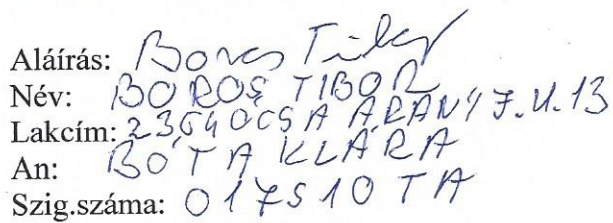 Aláírás: Boros Tibor
Név: BOROS TIBOR
Lakcím: 2364 ÓCSA ARANY J. U. 13
An: BÓTA KLÁRA
Szig.száma: 017510 TA